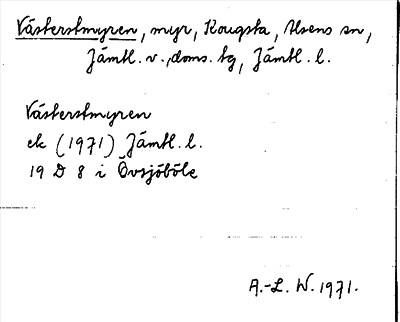 Västerstmyren, myr, Kougsta, Alsens sn,
Jämtl. v., doms. tg, Jämtl. l.
Västerstmyren
ek (1971) Jämtl. l.
19 D 8 i Övsjöböle
A.-L. W. 1971.